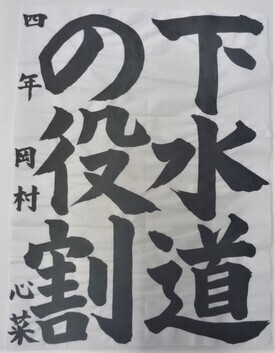 下水道
の役割
四年 岡村 心菜